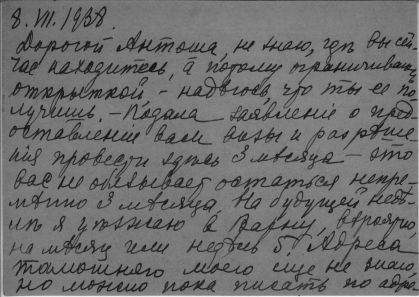 8. VII. 1938.
Дорогой Антоша, не знаю, гдѣ вы сей
час находитесь, а потому ограничиваюсь
открыткой – надѣюсь что ты ее по
лучишь. – Подала заявленіе о пред
оставленіи вам визы и разрѣше
нія провести здѣсь 3 мѣсяца – это
вас не обязывает остаться непре
мѣнно 3 мѣсяца. На будущей недѣ
лѣ я уѣзжаю в Варну, вѣроятно
на мѣсяц или недѣль 5. Адреса
тамошняго моего еще не знаю
но можно пока писать по адре